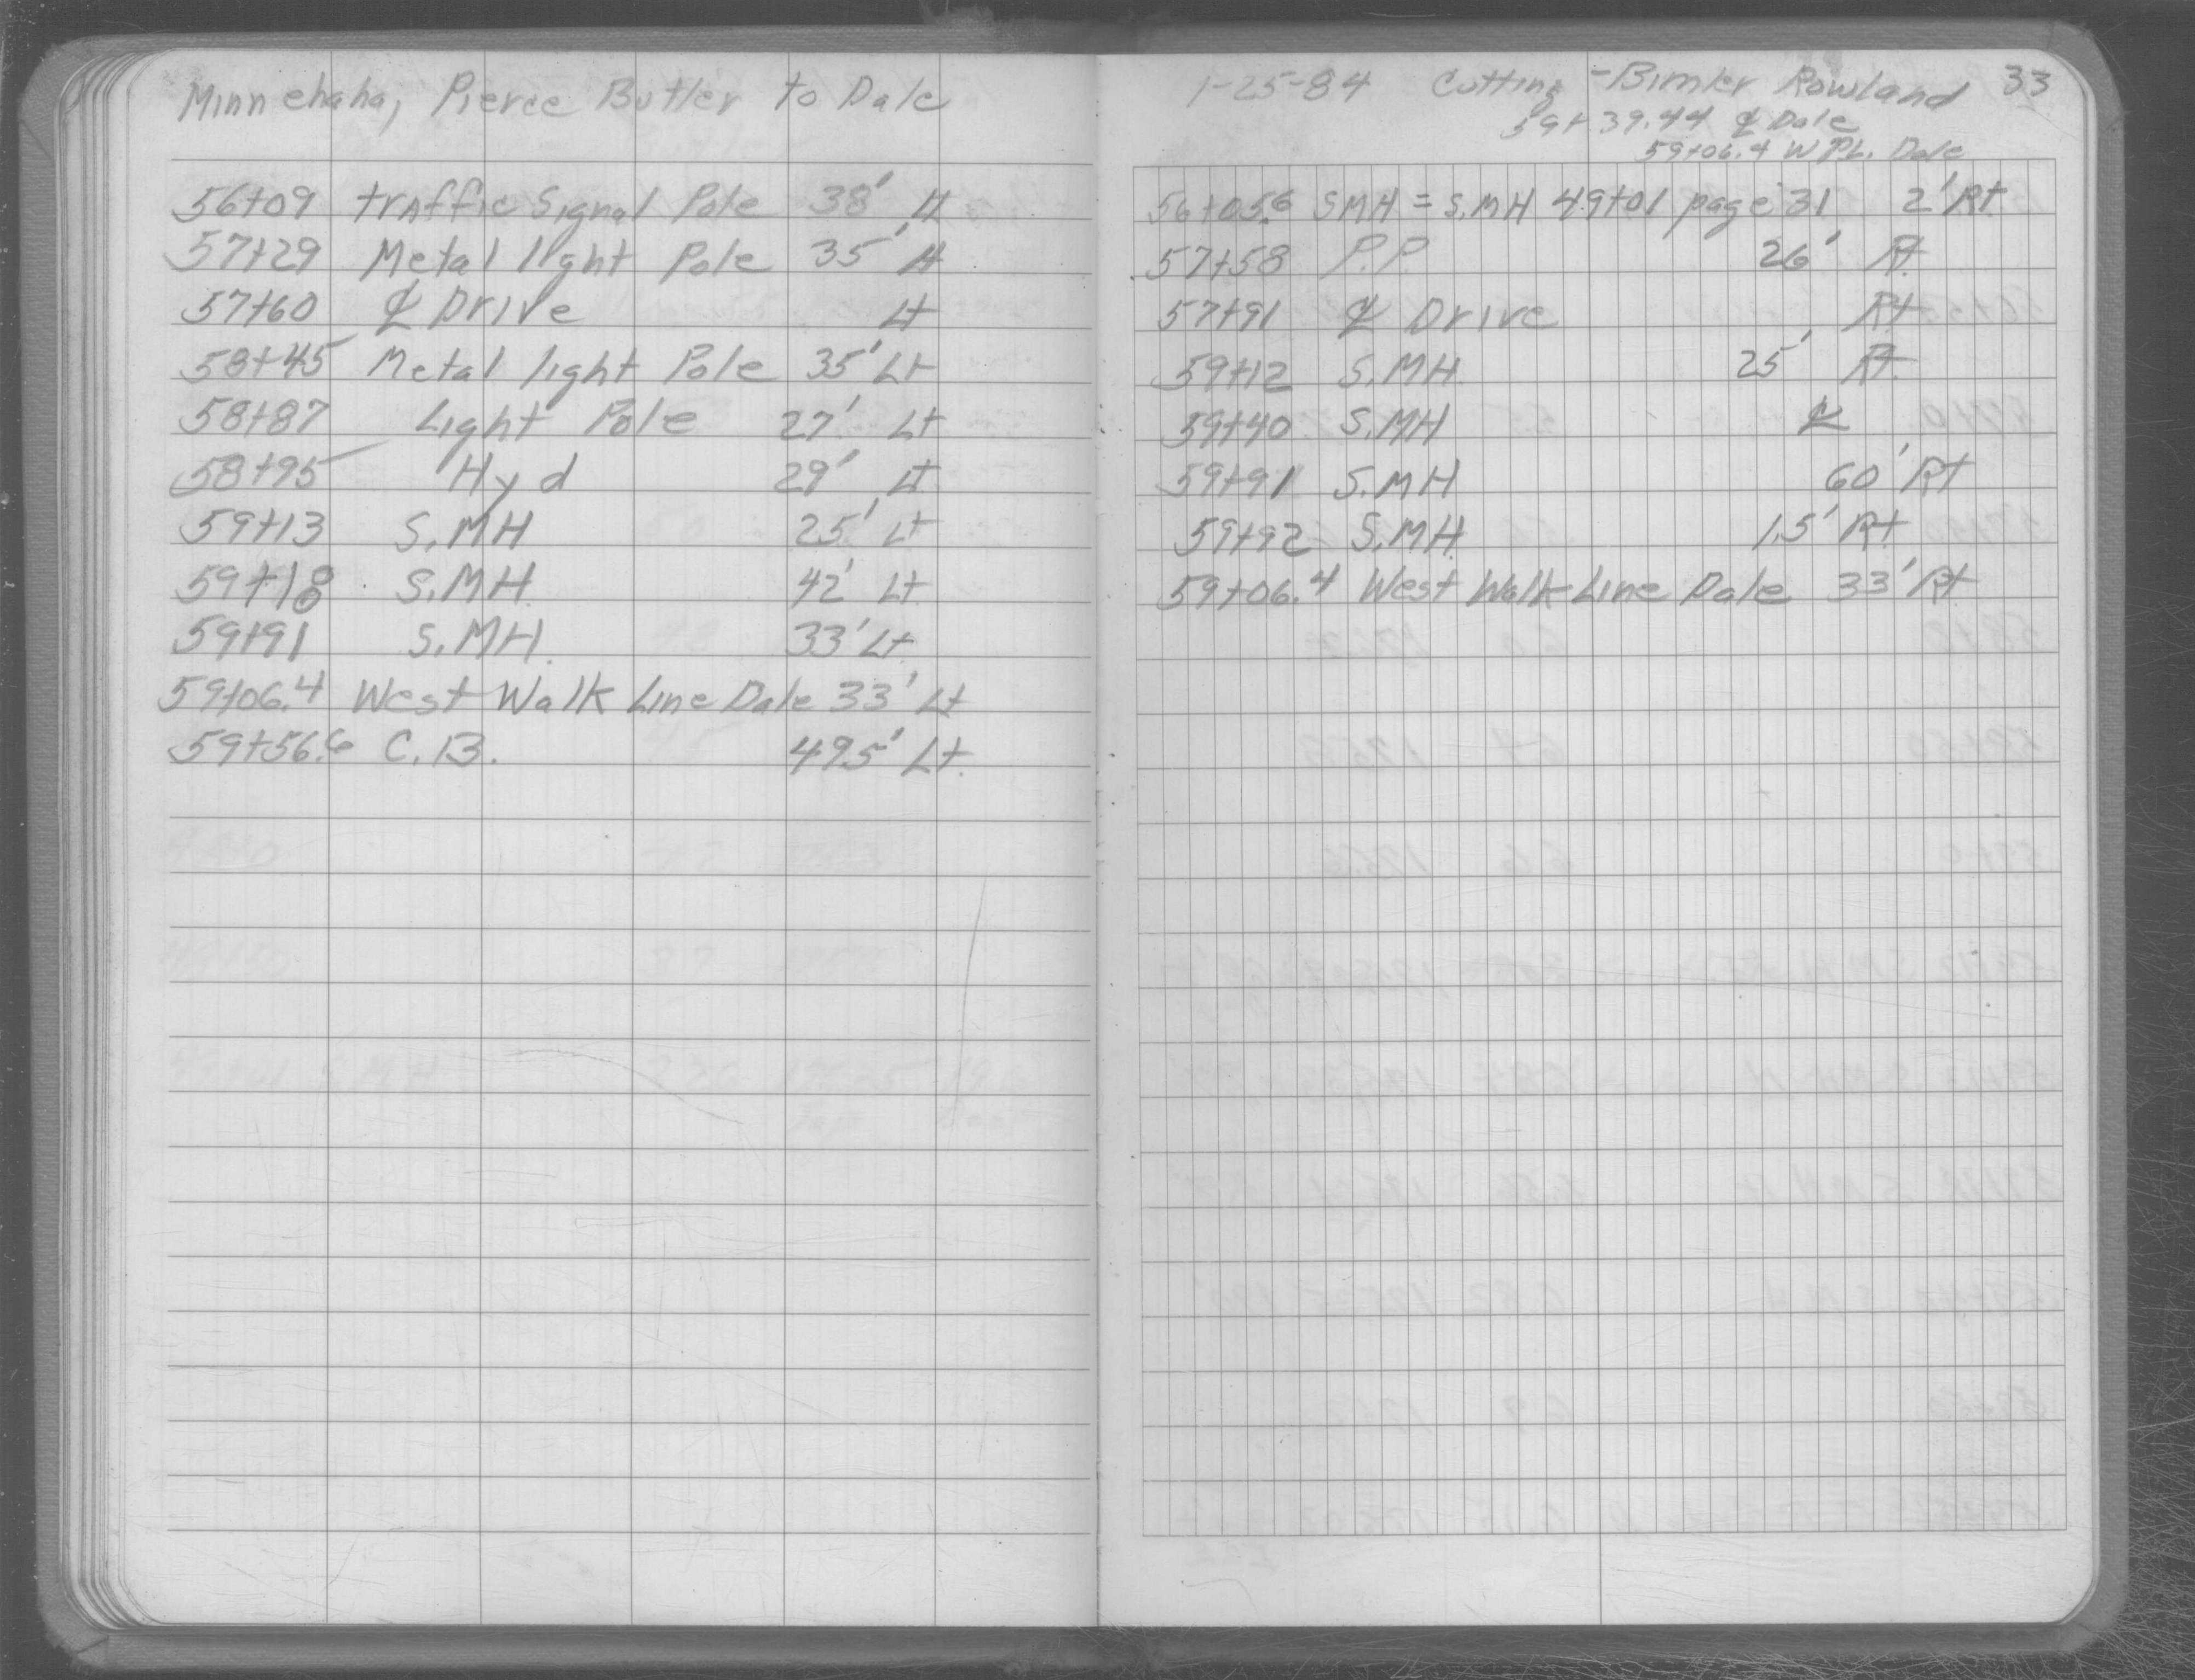 Minnehaha, Pierce Butler to Dale
56+09 traffic Signal Pole 38' Lt
57+29 Metal light Pole 35' Lt
57+60 ℄ Drive Lt
58+45 Metal light Pole 35' Lt
58+87 Light Pole 27' Lt
58+95 Hyd 29' Lt
59+13 S.MH 25' Lt
59+18 S.MH. 42' Lt
59+91 S.MH. 33' Lt
59+06.4 West Walk Line Dale 33' Lt
59+56.6 C.B. 49.5' Lt.
1-25-84 Cutting - Bimler Rowland 33
59+39.44 ℄ Dale
59+06.4 W P.L. Dale
56+05.6 SMH = S.MH 49+01 page 31 2' Rt
57+58 P.P. 26' Rt
57+91 ℄ Drive Rt
59+12 S.MH 25' Rt
59+40 S.MH ℄
59+91 S.MH 60' Rt
59+92 S.MH. 1.5' Rt
59+06.4 West Walk Line Dale 33' Rt